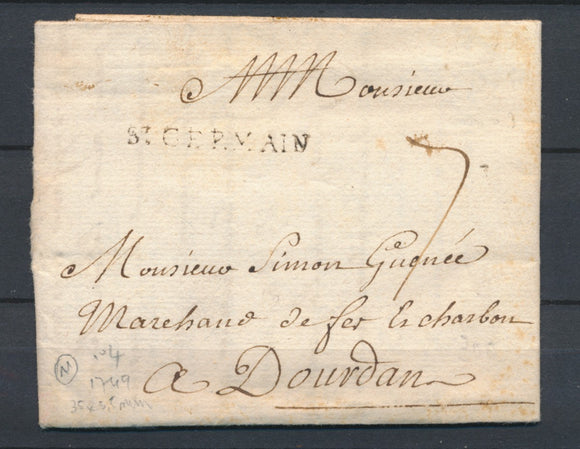 Monsieur
ST. GERMAIN
7
Monsieur Simon Guenée
Marchand de fer & charbon
a Dourdan
N
n°4
1749